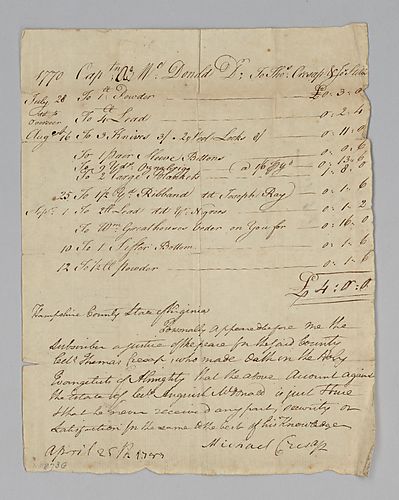 1770 Capt. Mc Donald Dr. To Thos. Cresap
July 28 To 1 lb Powder £0 .. 3 .. 0
To 4 lb Lead 0 .. 2 .. 4
Augt 16 To 3 Knives 3/ 2 Locks 8/ 0 .. 11 .. 0
To 1 pair Sleeve Buttons 0 .. 0 .. 6
To 9 Yds 0 .. 13 .. 6
To 2 1 .. 8 .. 0
25 To 1 1/2 Yd Ribband dd Joseph Ray 0 .. 1 .. 6
Sepr. 1 To 2 lb Lead dd Yr Negroe 0 .. 1 .. 2
To Wm Greathouses Order on You for 0 .. 16 .. 0
10 To 1 Sifter Bottom 0 .. 1 .. 6
12 To 1/2 lb Powder 0 .. 1 .. 6
£4 : 0 : 0
Hampshire County State of Virginia
Personally appeared before me the
Subscriber a Justice of the peace for the said County
Coll. Thomas Cresap who made Oath on the Holy
Evangelists of Almighty that the above Account against
the Estate of Coll. Anguish McDonald is just & true
& that he never received any part, security or
Satisfaction for the same to the best of his Knowledge
April 25th
Michael Cresap